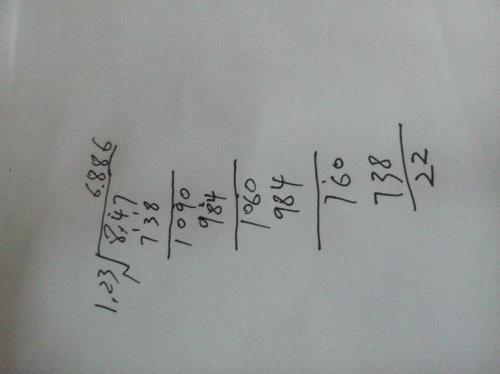 6.886
1.23 8.47
738
1090
984
1060
984
760
738
22